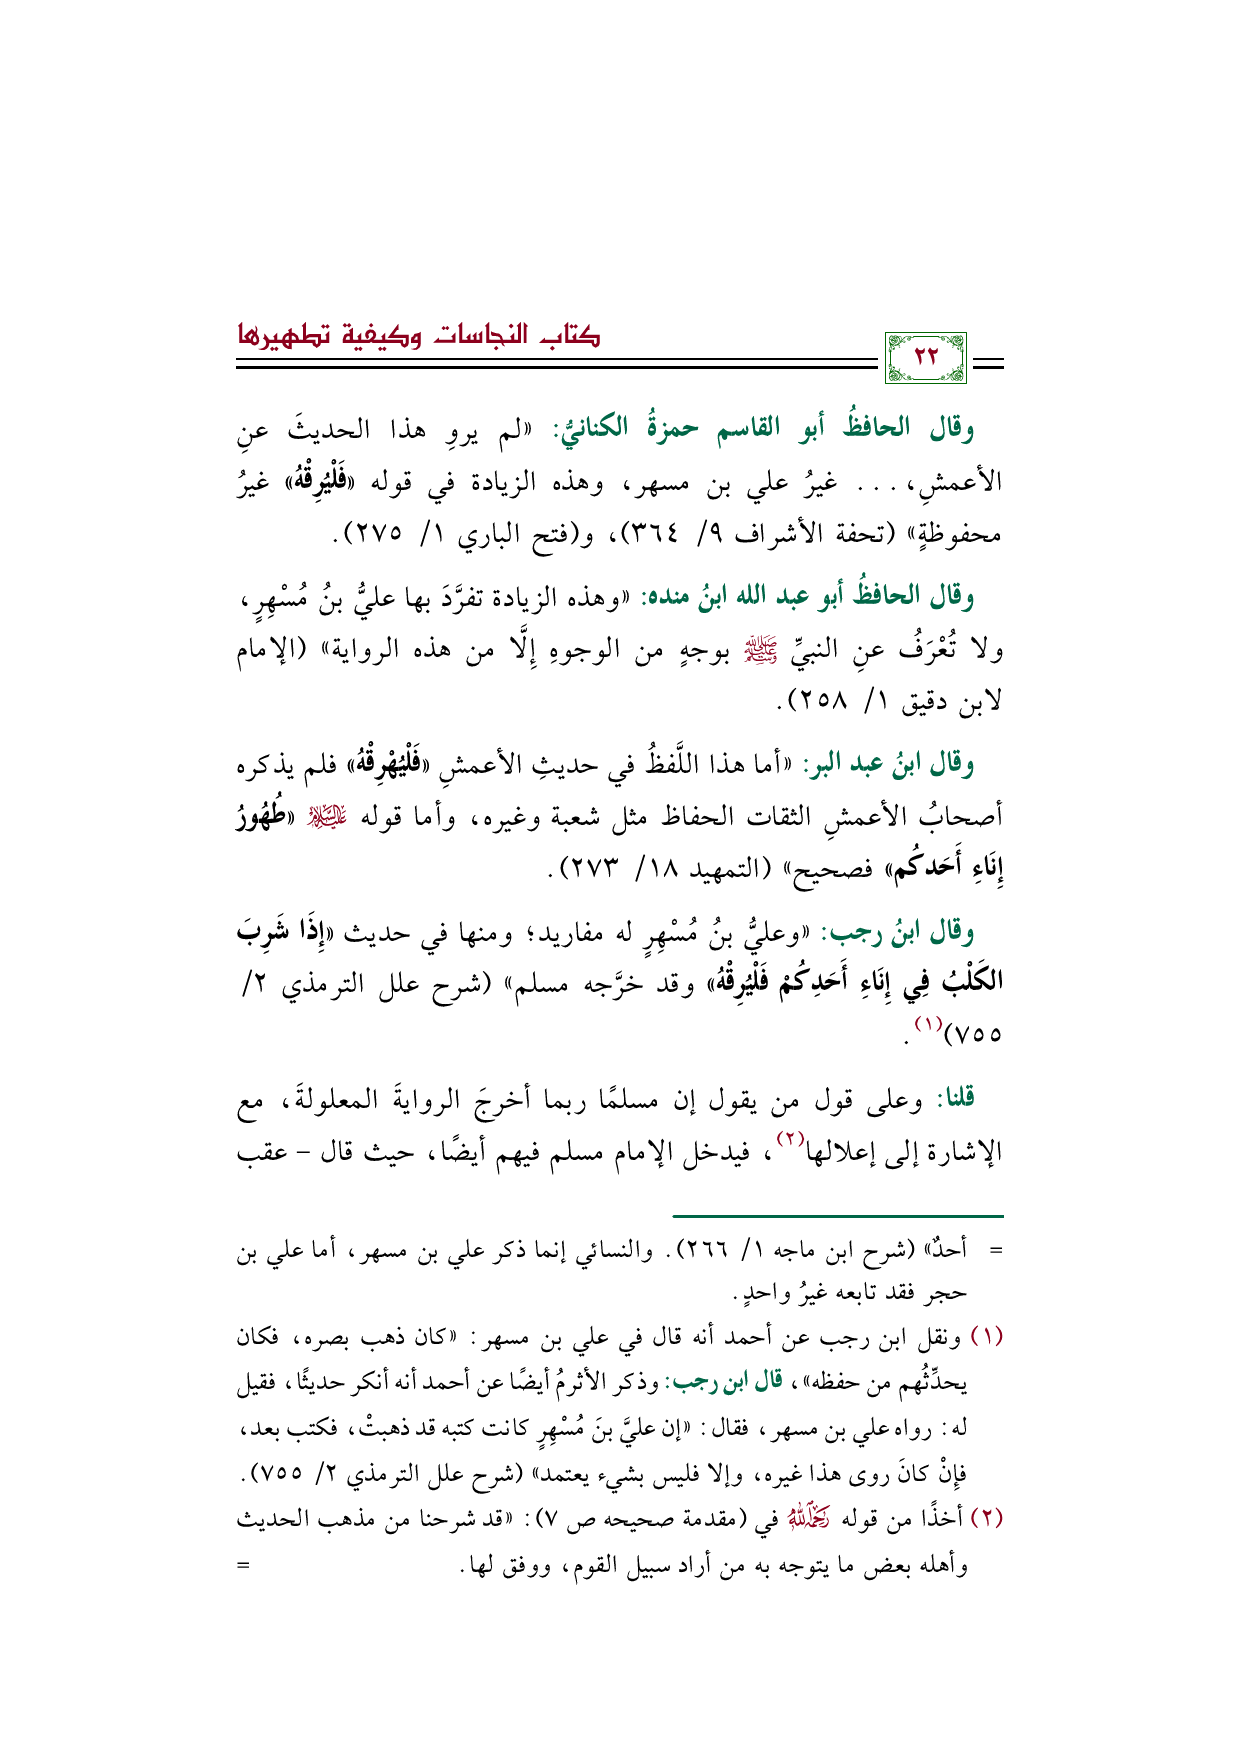 كتاب النجاسات وكيفية تطهيرها
٢٢
وقال الحافظُ أبو القاسم حمزةُ الكنانيُّ: «لم يروِ هذا الحديثَ عنِ
الأعمشِ، . . . غيرُ علي بن مسهر، وهذه الزيادة في قوله «فَلْيُرِقْهُ» غيرُ
محفوظةٍ» (تحفة الأشراف ٩/ ٣٦٤)، و(فتح الباري ١/ ٢٧٥).
وقال الحافظُ أبو عبد الله ابنُ منده: «وهذه الزيادة تفرَّدَ بها عليُّ بنُ مُسْهِرٍ،
ولا تُعْرَفُ عنِ النبيِّ ﷺ بوجهٍ من الوجوهِ إِلَّا من هذه الرواية» (الإمام
لابن دقيق ١/ ٢٥٨).
وقال ابنُ عبد البر: «أما هذا اللَّفظُ في حديثِ الأعمشِ «فَلْيُهْرِقْهُ» فلم يذكره
أصحابُ الأعمشِ الثقات الحفاظ مثل شعبة وغيره، وأما قوله عليه السلام «طُهُورُ
إِنَاءِ أَحَدكُم» فصحيح» (التمهيد ١٨/ ٢٧٣).
وقال ابنُ رجب: «وعليُّ بنُ مُسْهِرٍ له مفاريد؛ ومنها في حديث «إِذَا شَرِبَ
الكَلْبُ فِي إِنَاءِ أَحَدِكُمْ فَلْيُرِقْهُ» وقد خرَّجه مسلم» (شرح علل الترمذي ٢/
٧٥٥)(١).
قلنا: وعلى قول من يقول إن مسلمًا ربما أخرجَ الروايةَ المعلولةَ، مع
الإشارة إلى إعلالها(٢)، فيدخل الإمام مسلم فيهم أيضًا، حيث قال – عقب
= أحدٌ» (شرح ابن ماجه ١/ ٢٦٦). والنسائي إنما ذكر علي بن مسهر، أما علي بن
حجر فقد تابعه غيرُ واحدٍ.
(١) ونقل ابن رجب عن أحمد أنه قال في علي بن مسهر: «كان ذهب بصره، فكان
يحدِّثُهم من حفظه»، قال ابن رجب: وذكر الأثرمُ أيضًا عن أحمد أنه أنكر حديثًا، فقيل
له: رواه علي بن مسهر، فقال: «إن عليَّ بنَ مُسْهِرٍ كانت كتبه قد ذهبتْ، فكتب بعد،
فإِنْ كانَ روى هذا غيره، وإلا فليس بشيء يعتمد» (شرح علل الترمذي ٢/ ٧٥٥).
(٢) أخذًا من قوله رحمه الله في (مقدمة صحيحه ص ٧): «قد شرحنا من مذهب الحديث
وأهله بعض ما يتوجه به من أراد سبيل القوم، ووفق لها. =